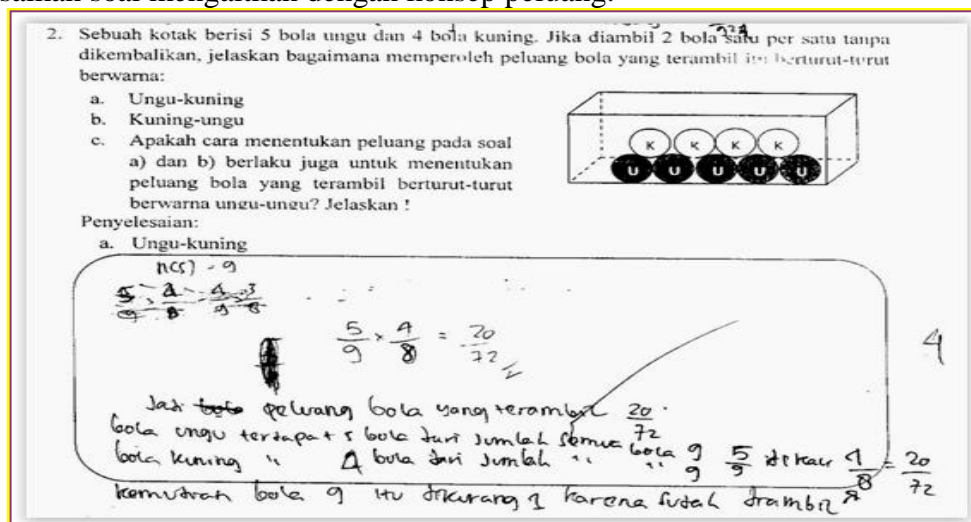 saikan soal mengaitkan dengan konsep peluang.
2. Sebuah kotak berisi 5 bola ungu dan 4 bola kuning. Jika diambil 2 bola satu per satu tanpa
dikembalikan, jelaskan bagaimana memperoleh peluang bola yang terambil itu berturut-turut
berwarna:
a. Ungu-kuning
b. Kuning-ungu
c. Apakah cara menentukan peluang pada soal
a) dan b) berlaku juga untuk menentukan
peluang bola yang terambil berturut-turut
berwarna ungu-ungu? Jelaskan !
K K K K
U U U U U
Penyelesaian:
a. Ungu-kuning
n(s) - 9
5/9 × 4/8 = 20/72
4
Jadi peluang bola yang terambil 20/72.
bola ungu terdapat 5 bola dari jumlah semua bola 9
bola kuning " 4 bola dari jumlah " " 9 5/9 dikali 4/8 = 20/72
kemudian bola 9 itu dikurang 1 karena sudah diambil